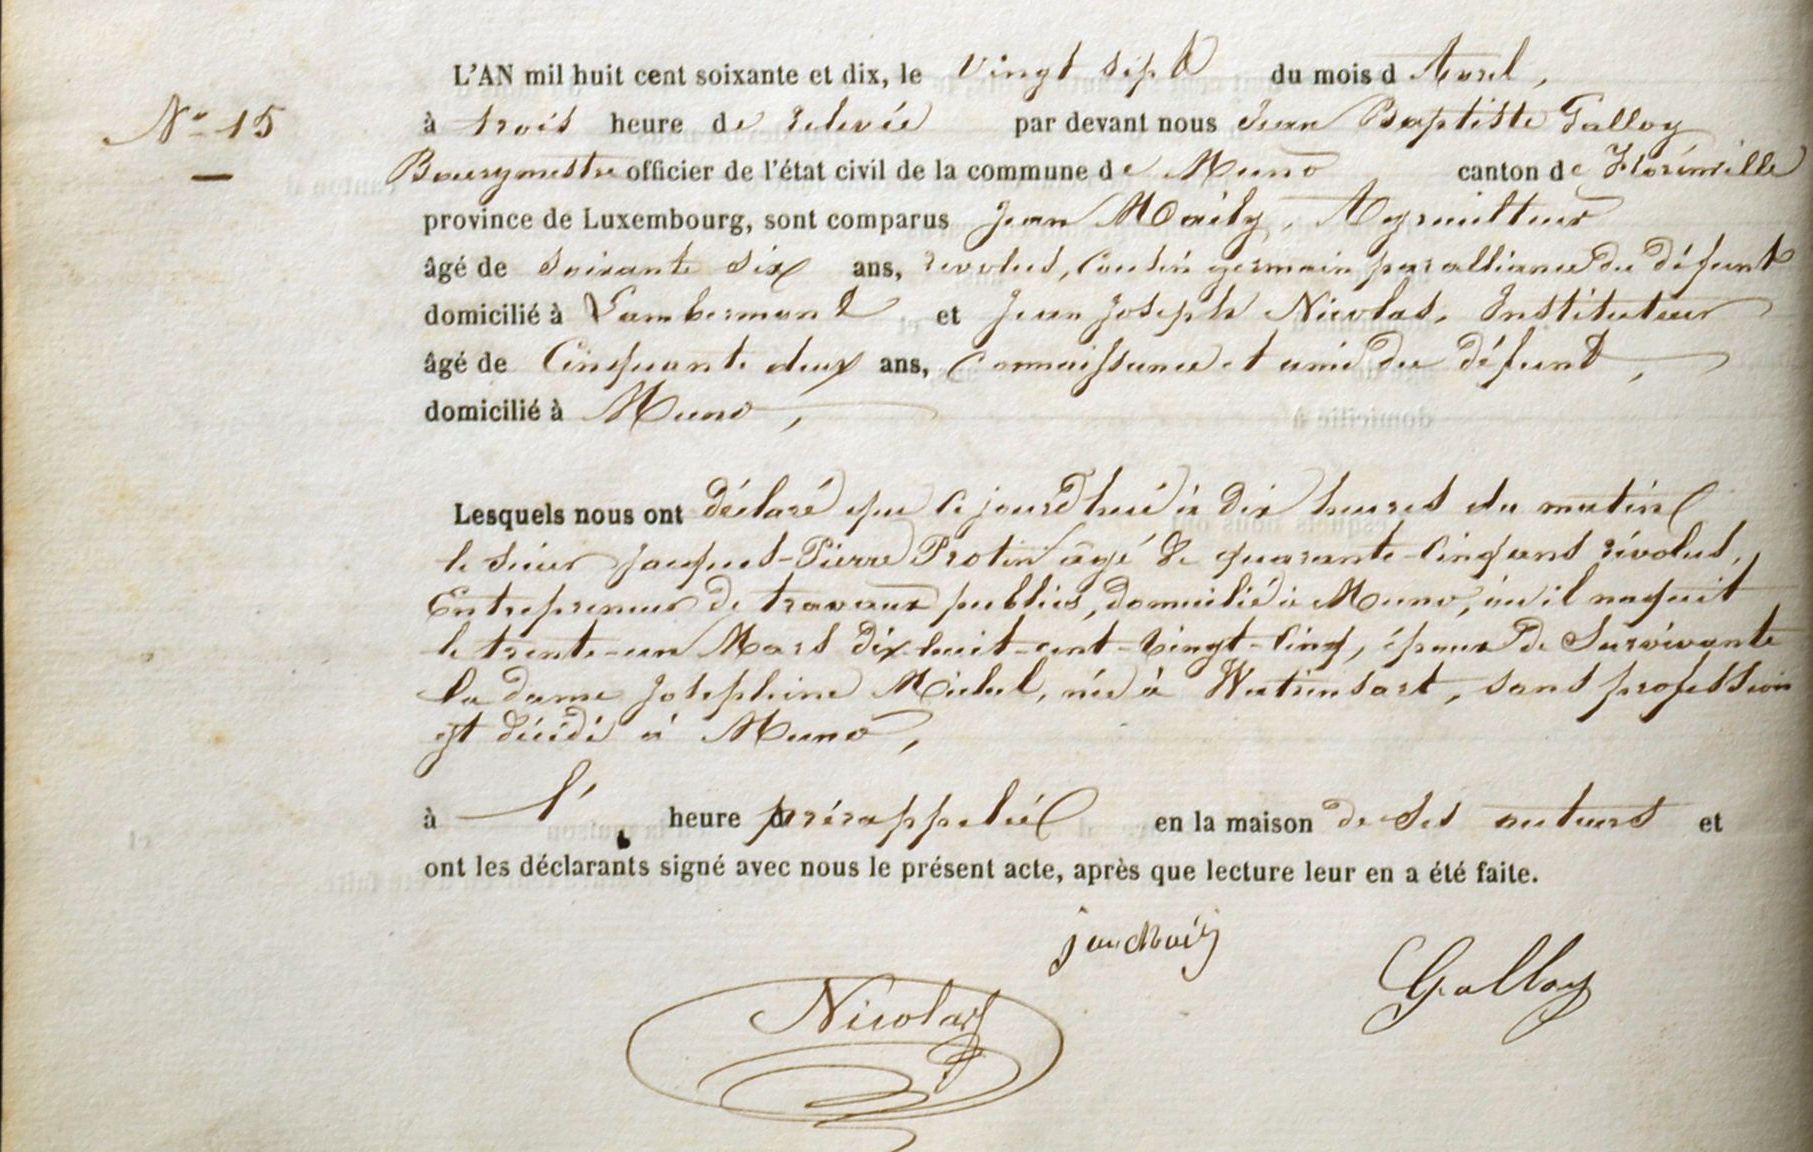 L'AN mil huit cent soixante et dix, le vingt sept du mois d'Avril,
N° 15
à trois heure de relevée par devant nous Jean Baptiste Galloy
Bourgmestre officier de l'état civil de la commune de Muno canton de Florenville
province de Luxembourg, sont comparus Jean Maily, Agriculteur
âgé de soixante six ans, revolus, Cousin germain par alliance du défunt
domicilié à Lambermont et Jean Joseph Nicolas, Instituteur
âgé de Cinquante deux ans, Connaissance et ami du défunt,
domicilié à Muno,
Lesquels nous ont déclaré que ce jourd'hui à dix heures du matin
le sieur Jacques-Pierre Protin âgé de quarante-cinq ans révolus,
Entrepreneur de travaux publics, domicilié à Muno, où il naquit
le trente-un Mars dix-huit-cent-vingt-cinq, époux de Survivante
la dame Joséphine Michel, née à Watrinsart, sans profession
est décédé à Muno,
à l' heure d prérappelée en la maison de ses auteurs et
ont les déclarants signé avec nous le présent acte, après que lecture leur en a été faite.
jean Maily
Galloy
Nicolas